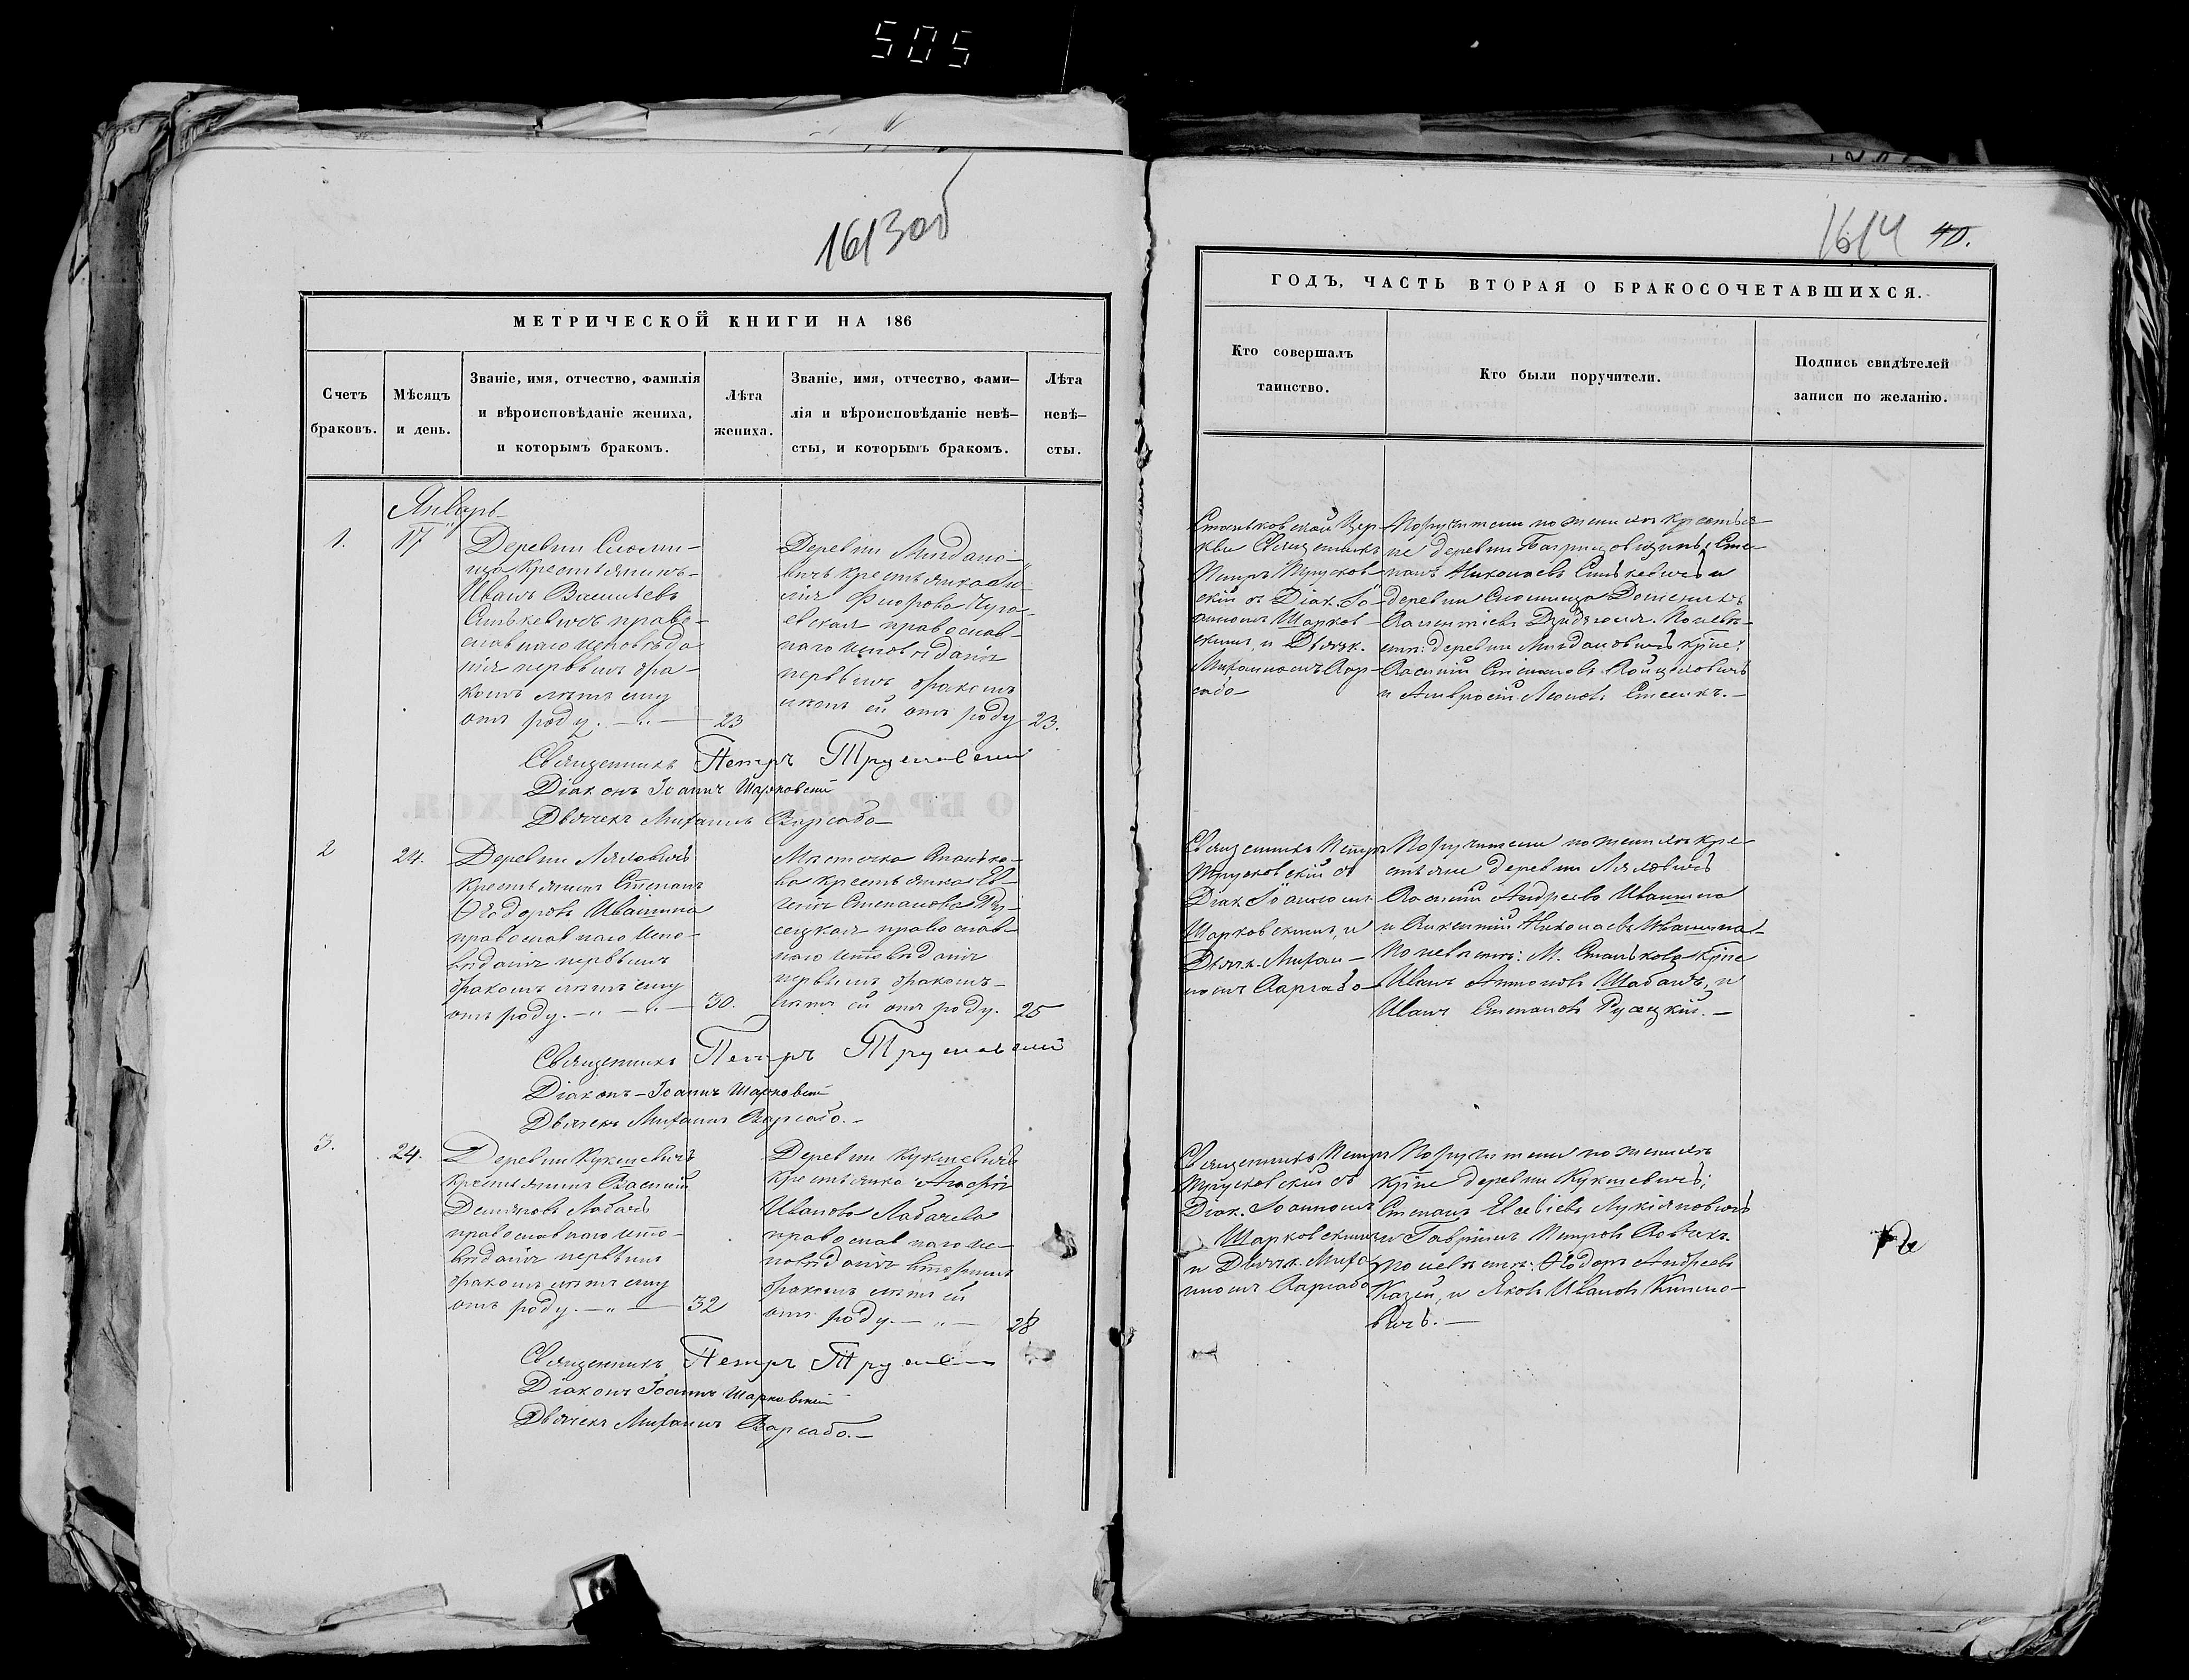 505
1613 об
1614 40.
МЕТРИЧЕСКОЙ КНИГИ НА 186
Счетъ браковъ.
Мѣсяцъ и день.
Званіе, имя, отчество, фамилія
и вѣроисповѣданіе жениха,
и которымъ бракомъ.
Лѣта жениха.
Званіе, имя, отчество, фами–
лія и вѣроисповѣданіе невѣ–
сты, и которымъ бракомъ.
Лѣта
невѣ–
сты.
Январь
1.
17
Деревни
крестьянинъ
Иванъ Васильевъ
Синькевичъ право-
славнаго исповѣда
нія первымъ бра-
комъ лѣтъ ему
отъ роду. 23
Деревни
вичъ крестьянка
православ-
наго исповѣданія
первымъ бракомъ
лѣтъ ей отъ роду 23.
Священникъ Петръ
Діаконъ Іоаннъ Шарковскій
Дьячекъ Михаилъ
2
24.
Деревни Ляховичъ
крестьянинъ Степанъ
Ѳеодоровъ Ивашина
православнаго испо-
вѣданія первымъ
бракомъ лѣтъ ему
отъ роду. 30.
Мѣстечка Станько-
ва крестьянка Ев-
Степанова Ру-
сецкая православ-
наго исповѣданія
первымъ бракомъ
лѣтъ ей отъ роду. 25
Священникъ Петръ
Діаконъ Іоаннъ Шарковскій
Дьячекъ Михаилъ
3.
24.
Деревни Кукшевичъ
крестьянинъ Василій
Демьяновъ Лабачъ
православнаго испо-
вѣданія первымъ
бракомъ лѣтъ ему
отъ роду. 32
Деревни Кукшевичъ
крестьянка
Иванова Лабачева
православнаго ис-
повѣданія вторымъ
бракомъ лѣтъ ей
отъ роду. 28
Священникъ Петръ
Діаконъ Іоаннъ Шарковскій
Дьячекъ Михаилъ
ГОДЪ, ЧАСТЬ ВТОРАЯ О БРАКОСОЧЕТАВШИХСЯ.
Кто совершалъ
таинство.
Кто были поручители.
Подпись свидѣтелей
записи по желанію.
Станьковской Цер-
кви Священникъ
Петръ Трусков-
скій съ Діак. Іо-
анномъ Шарков-
скимъ, и Дьячк.
Поручители по женихѣ крестья-
не деревни Сте-
панъ Николаевъ Синькевичъ и
деревни
По невѣ-
стѣ: деревни кр̃не:
Василій Степановъ
и Амвросій
Священникъ Петръ
Трусковскій съ
Діак. Іоанномъ
Шарковскимъ, и
Дьячк. Михаи-
Поручители по женихѣ кре-
стьяне деревни Ляховичъ
Василій Андреевъ Ивашина
и Викентій Николаевъ Ивашина
По невѣстѣ: М. Станькова кр̃не
Иванъ Антоновъ Шабанъ, и
Иванъ Степановъ Русецкій.
Священникъ Петръ
Трусковскій съ
Діак. Іоанномъ
Шарковскимъ
и Дьячк. Миха
Поручители по женихѣ
кр̃не деревни Кукшевичъ;
Степанъ Лукіяновичъ
и Гавріилъ Петровъ
по невѣстѣ: Ѳеодоръ Андреевъ
и Яковъ Ивановъ Климо-
вичъ.